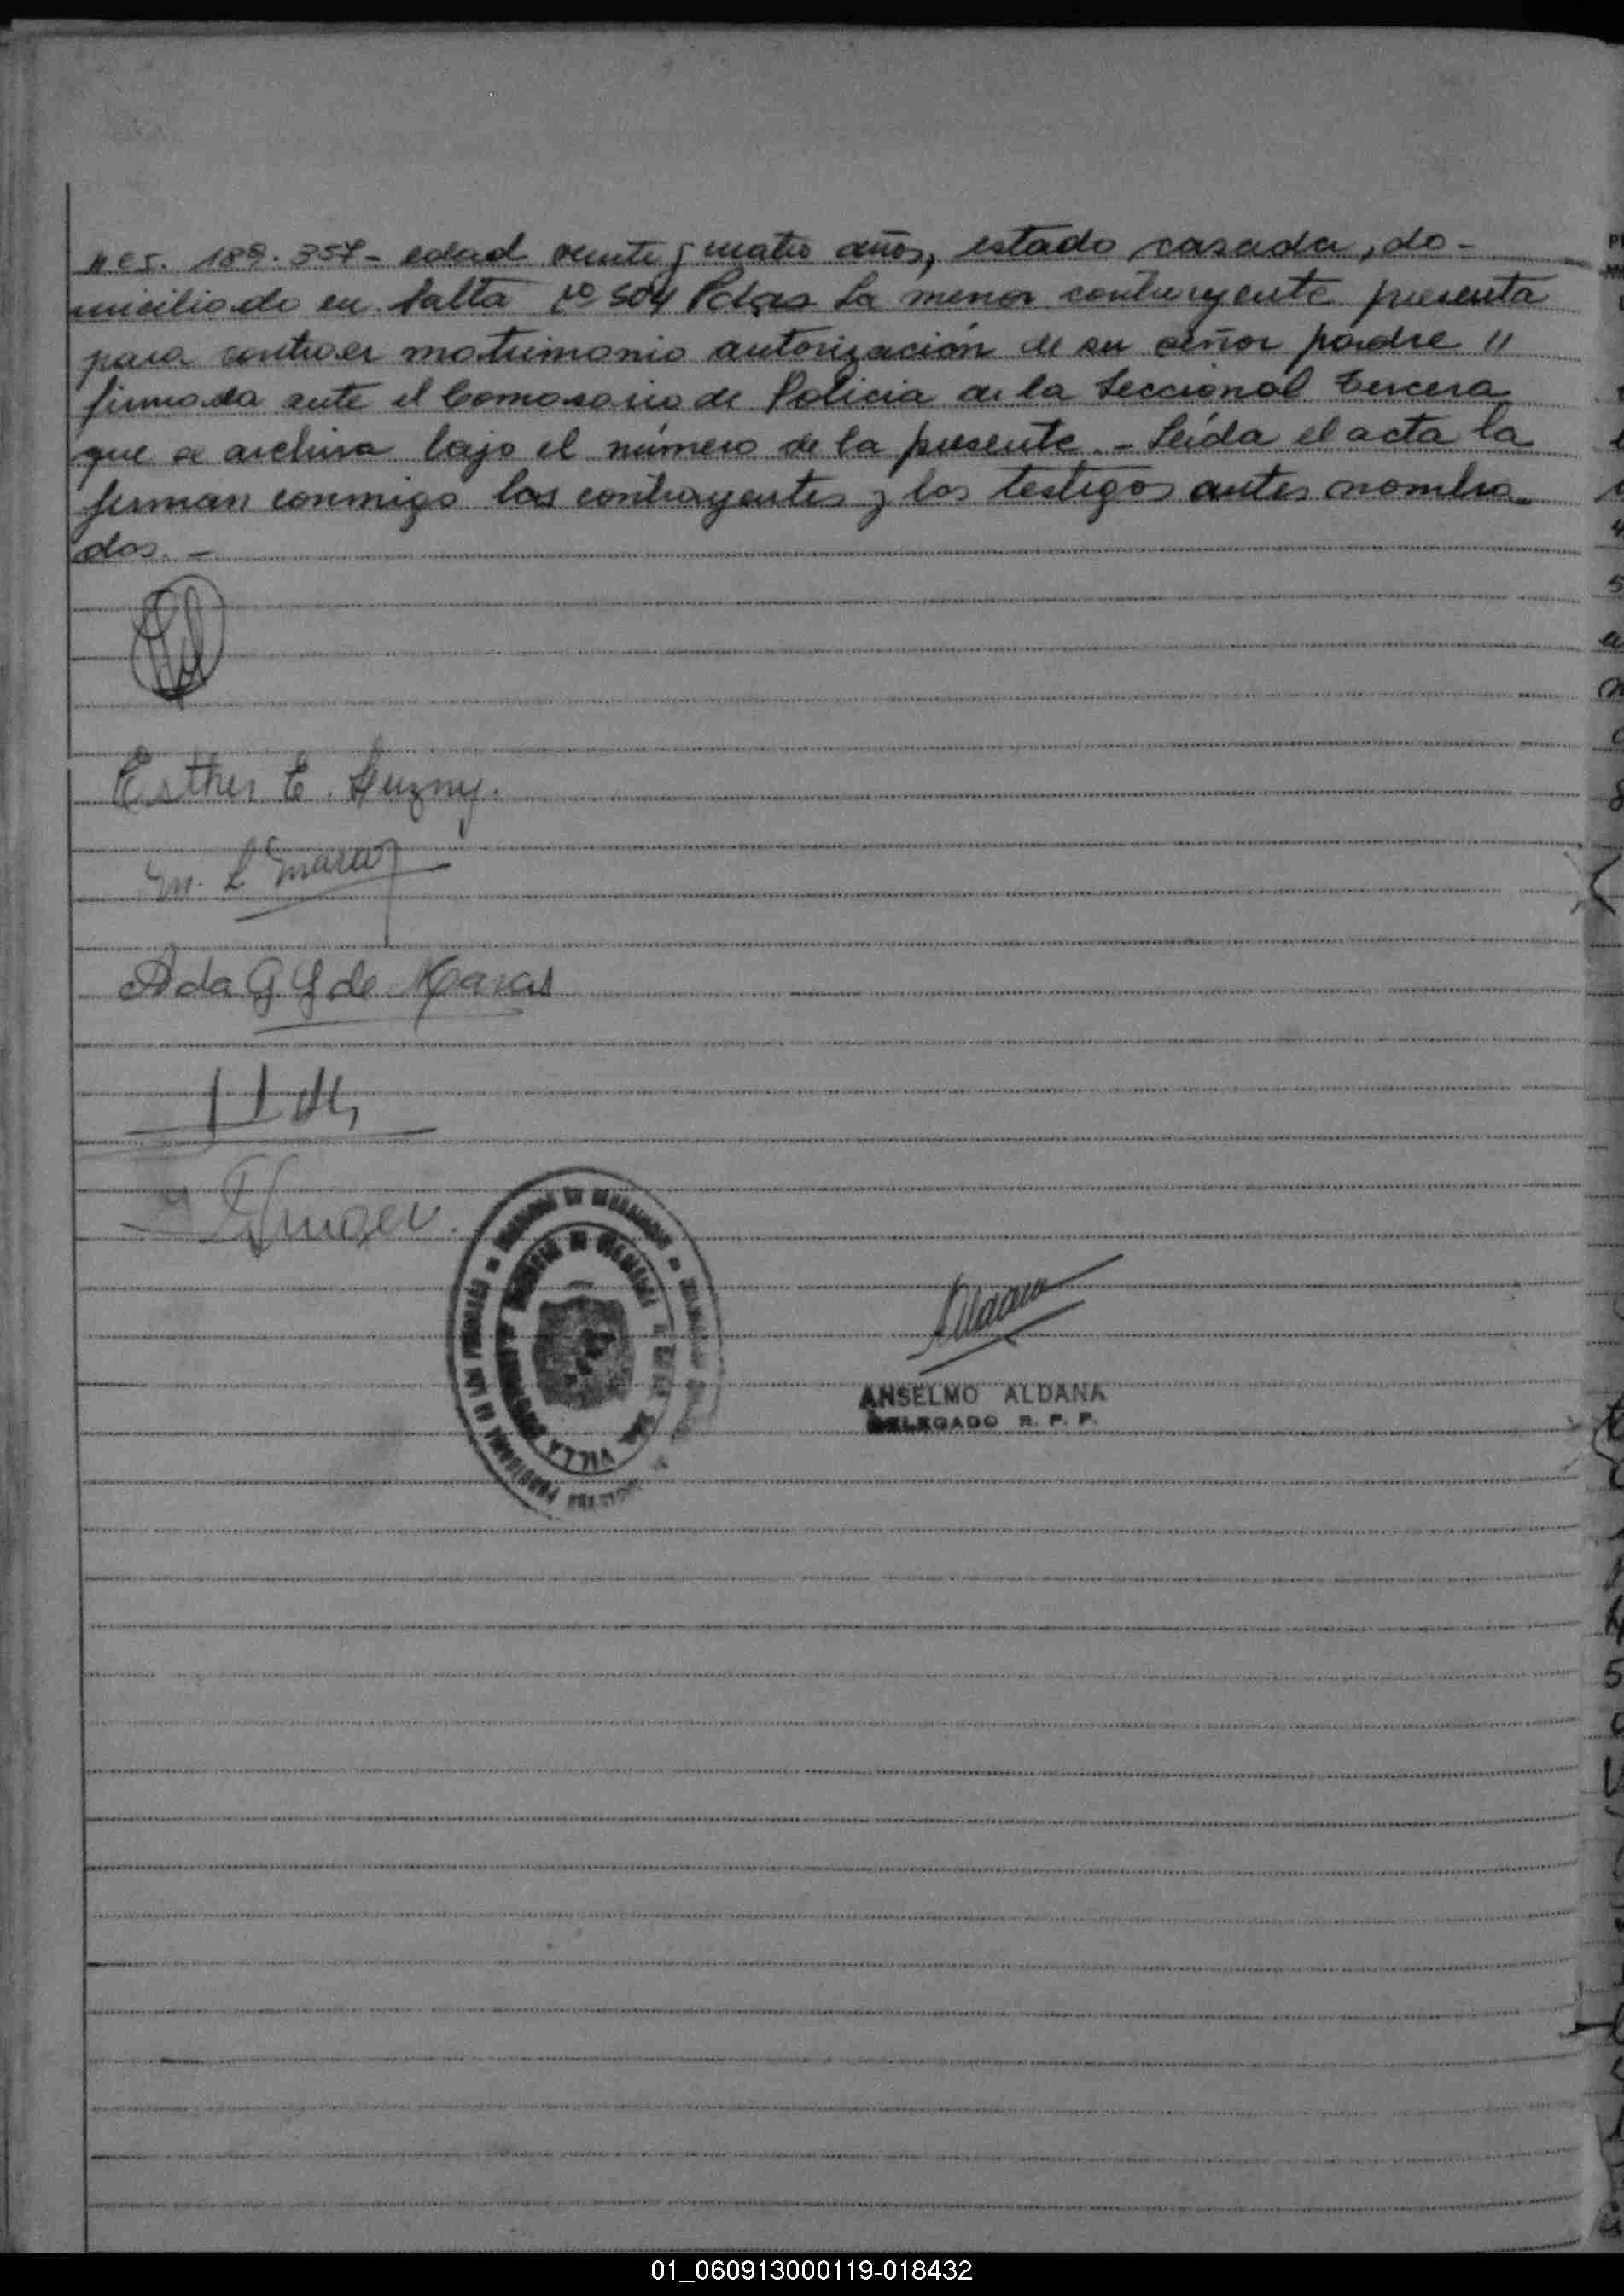 "es. 189.357 - edad veinte y cuatro años, estado casada, do-
miciliado en Salta Nº 504 Pdas La menor contrayente presenta
para contraer matrimonio autorización de su señor padre "
firmada ante el Comosario de Policia de la Seccional tercera
que se archiva bajo el número de la presente. - Leída el acta la
firman conmigo los contrayentes y los testigos antes nombra-
dos. -
Esther E.
M. L.
Ada G G de Maras
ANSELMO ALDANA
DELEGADO R. P. P.
VILLA
01_060913000119-018432